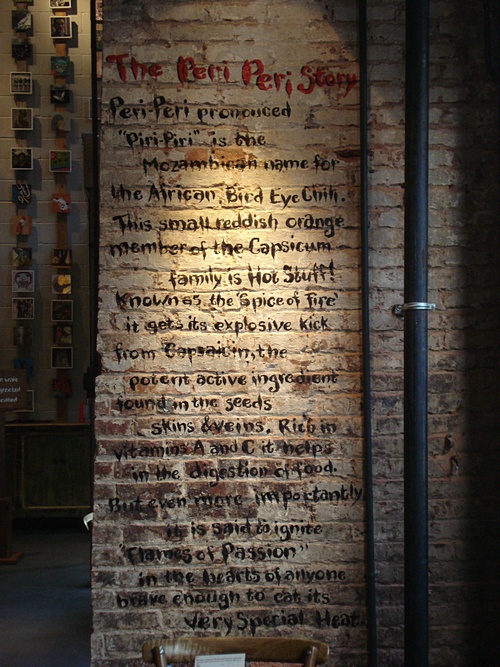 The Peri Peri Story
Peri-Peri pronounced
"Piri-Piri" is the
Mozambican name for
the African Bird Eye Chili.
This small reddish orange
member of the Capsicum
family is Hot Stuff!
Known as the 'Spice of Fire'
it gets its explosive kick
from Capsaicin, the
potent active ingredient
found in the seeds
skins & veins. Rich in
vitamins A and C it helps
in the digestion of food.
But even more importantly
it is said to ignite
"Flames of Passion"
in the hearts of anyone
brave enough to eat its
Very Special Heat.